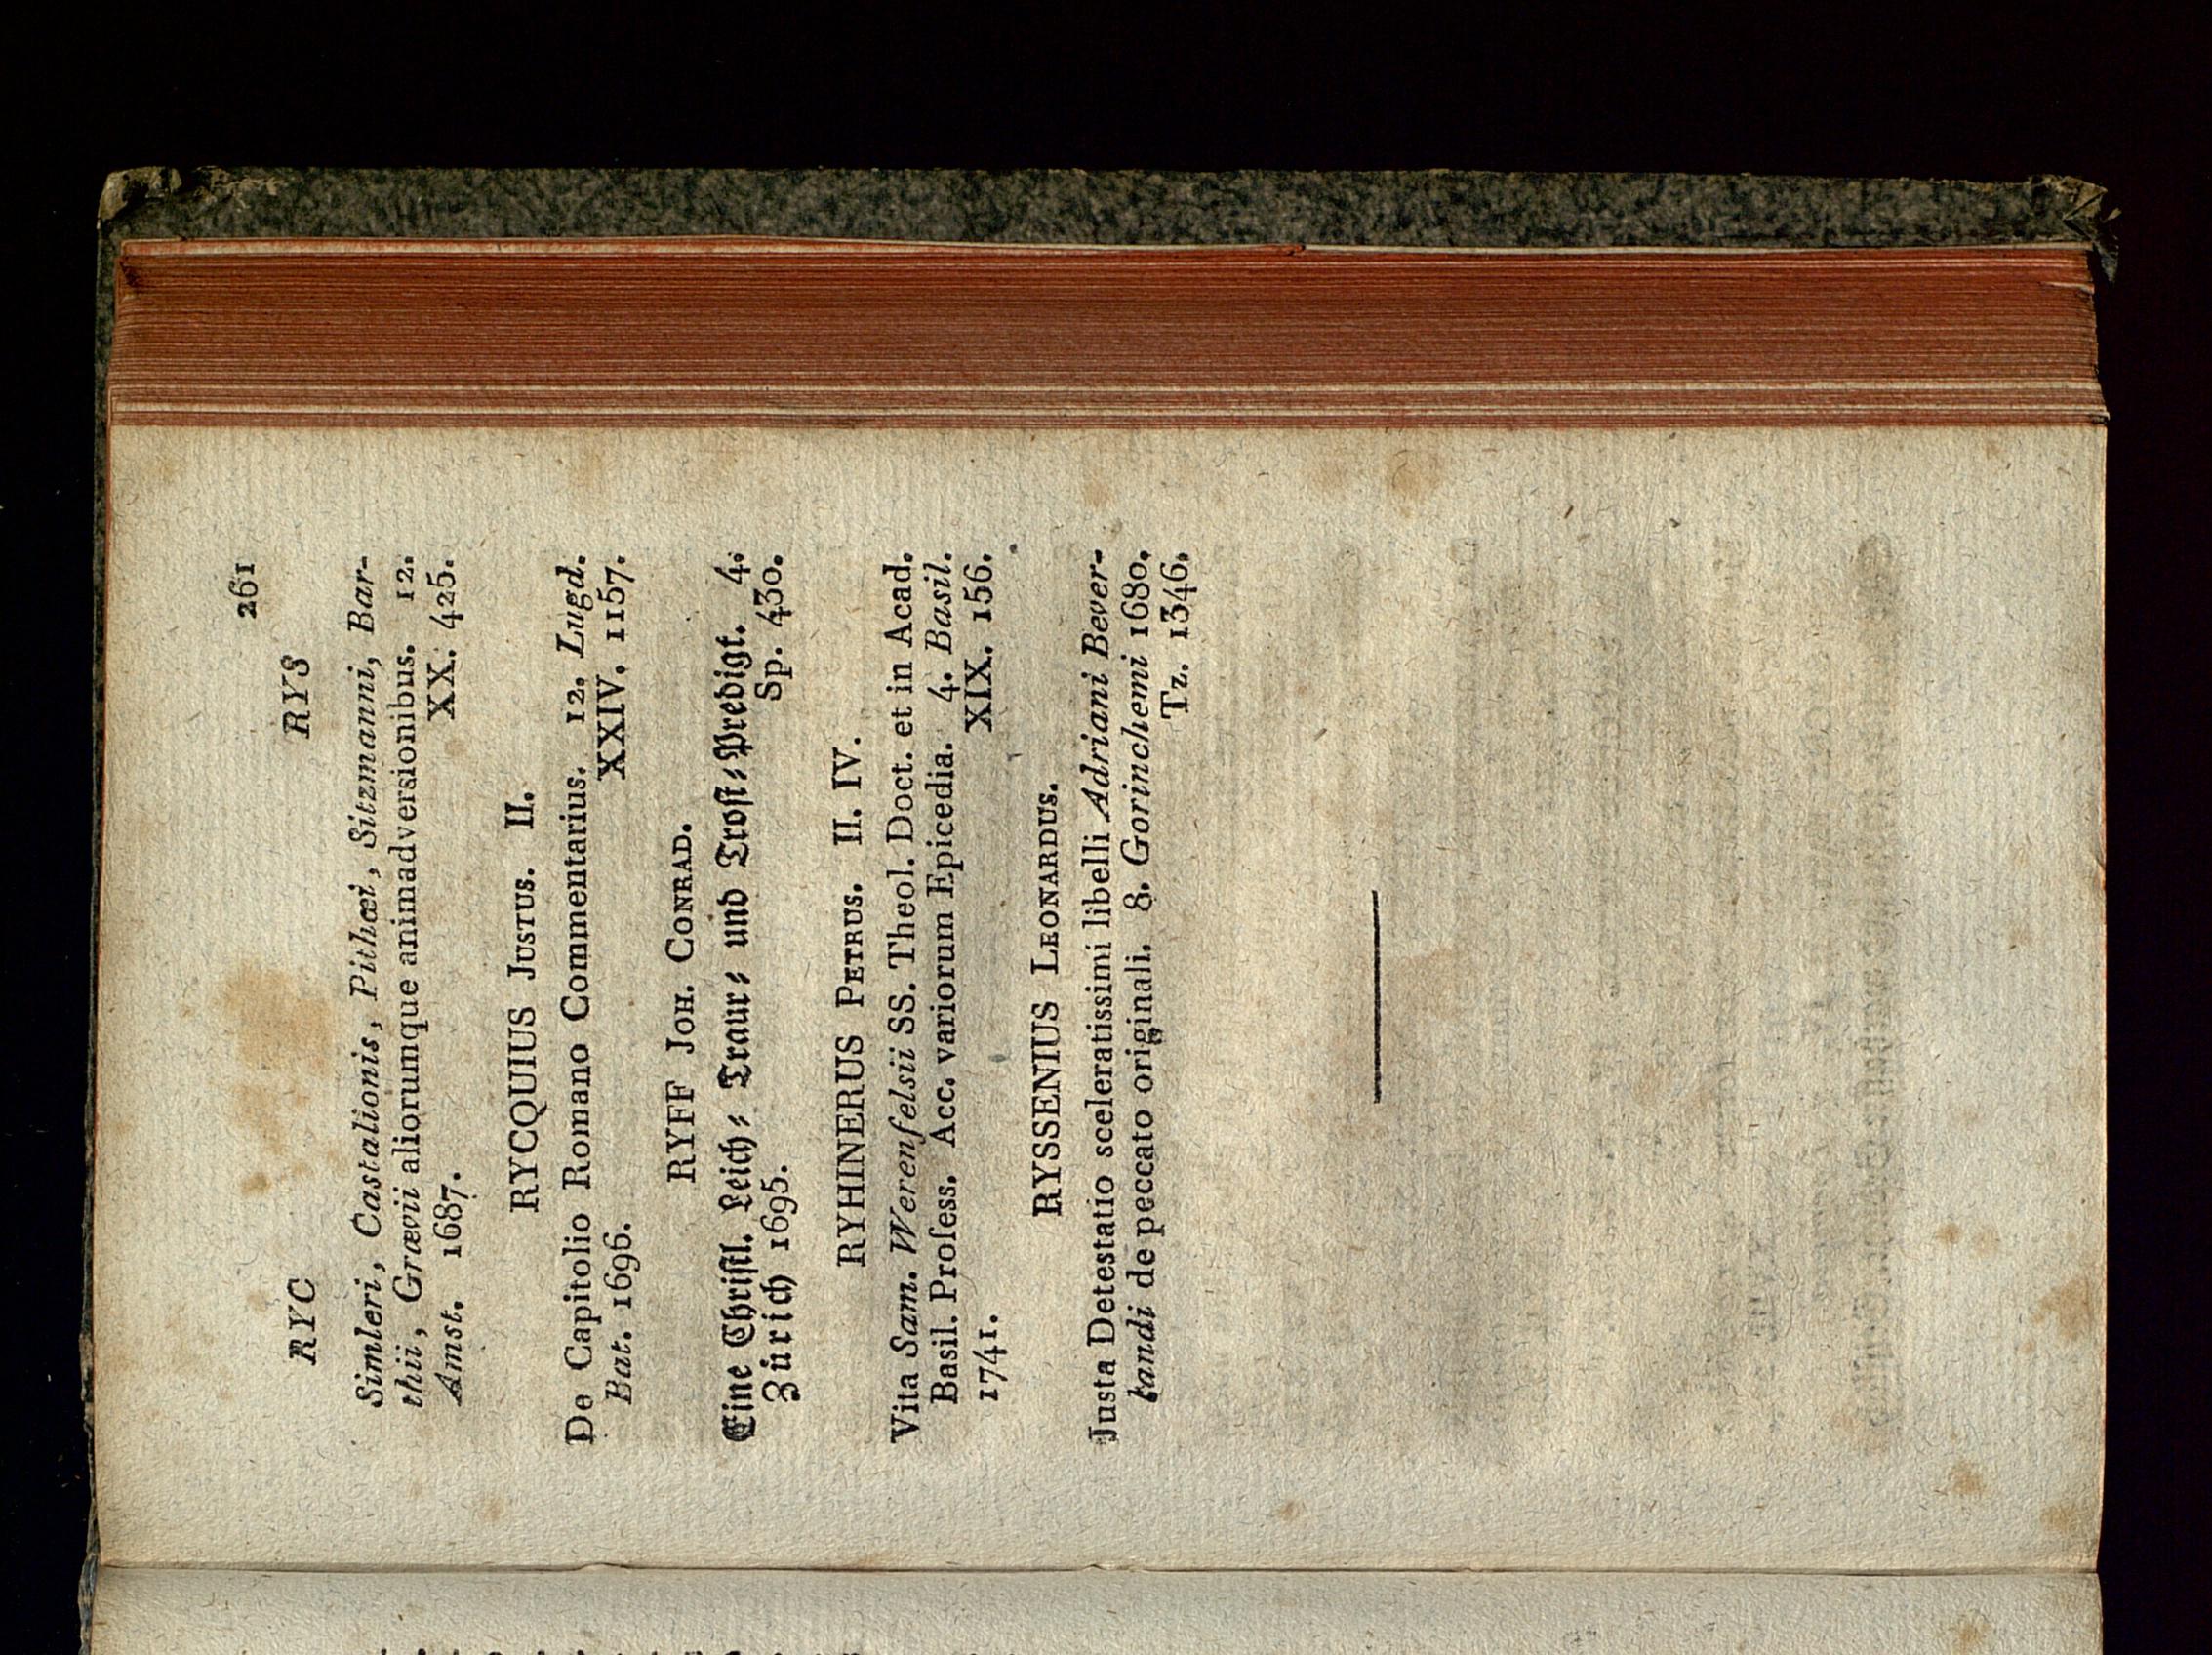 261
RYC RYS
Simleri, Castalionis, Pithœi, Sitzmanni, Bar-
thii, Grævii aliorumque animadversionibus. 12.
Amst. 1687. XX. 425.
RYCQUIUS Justus. II.
De Capitolio Romano Commentarius. 12. Lugd.
Bat. 1696. XXIV. 1157.
RYFF Joh. Conrad.
Eine Christl. Leich- Traur- und Trost-Predigt. 4.
Zürich 1695. Sp. 430.
RYHINERUS Petrus. II. IV.
Vita Sam. Werenfelsii SS. Theol. Doct. et in Acad.
Basil. Profess. Acc. variorum Epicedia. 4. Basil.
1741. XIX. 156.
RYSSENIUS Leonardus.
Justa Detestatio sceleratissimi libelli Adriani Bever-
landi de peccato originali. 8. Gorinchemi 1680.
Tz. 1346.